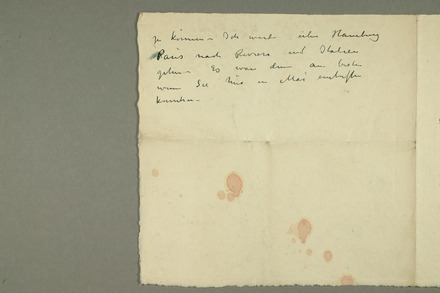 zu kommen. Ich werde über Hamburg
Paris nach Riviera und Italien
gehen. Es wäre dann am besten
wenn Sie im Mai
könnten.